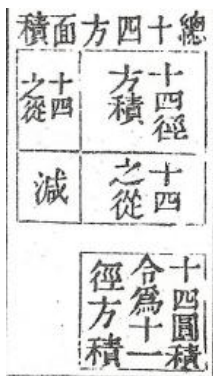 總十四方面積
十四徑
方積
十四
之從
十四
之從
減
十四圓積
令爲十一
徑方積